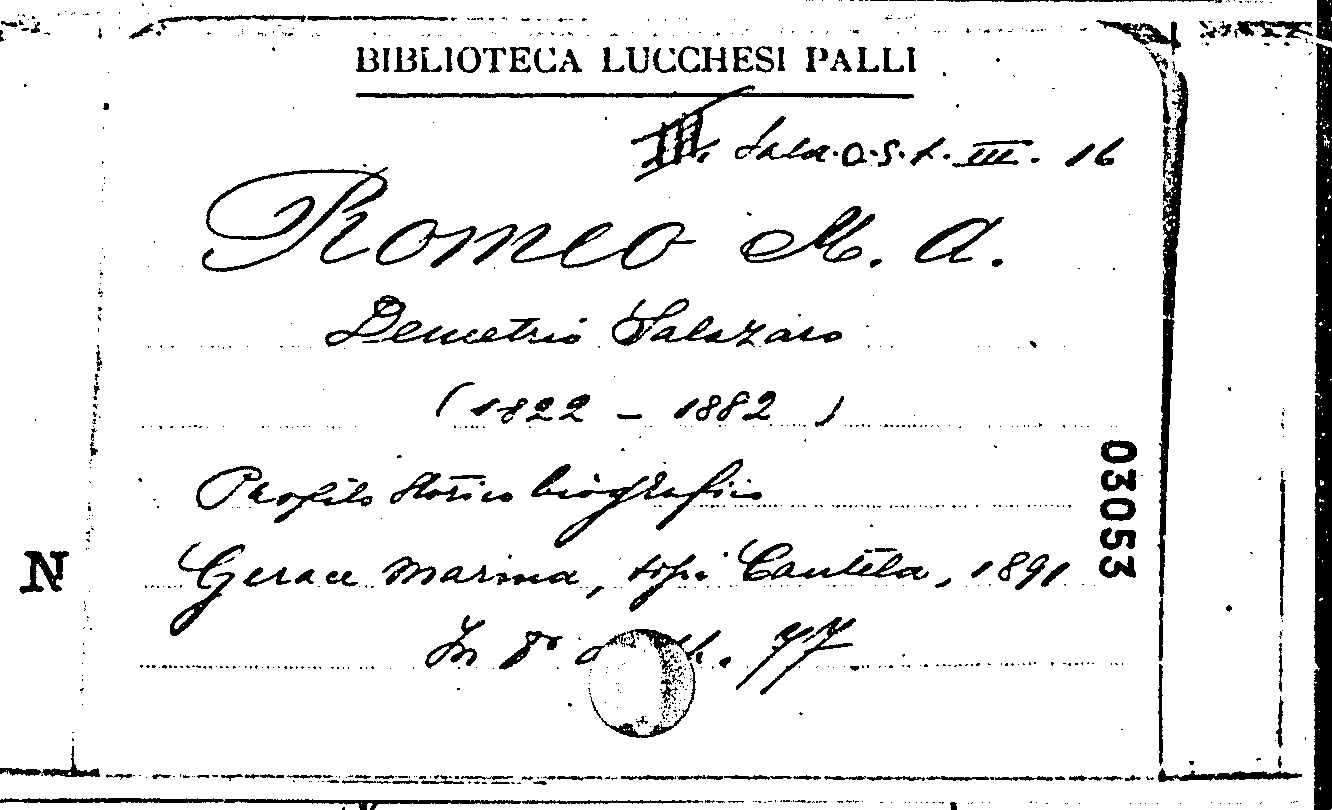 BIBLIOTECA LUCCHESI PALLI
III. Sala. O. S. L. III. 16
Romeo M. A.
Demetrio Salazaro
(1822 - 1882)
Profilo storico biografico
Gerace Marina, tip. Cautela, 1891
In 8° 77
03053
N